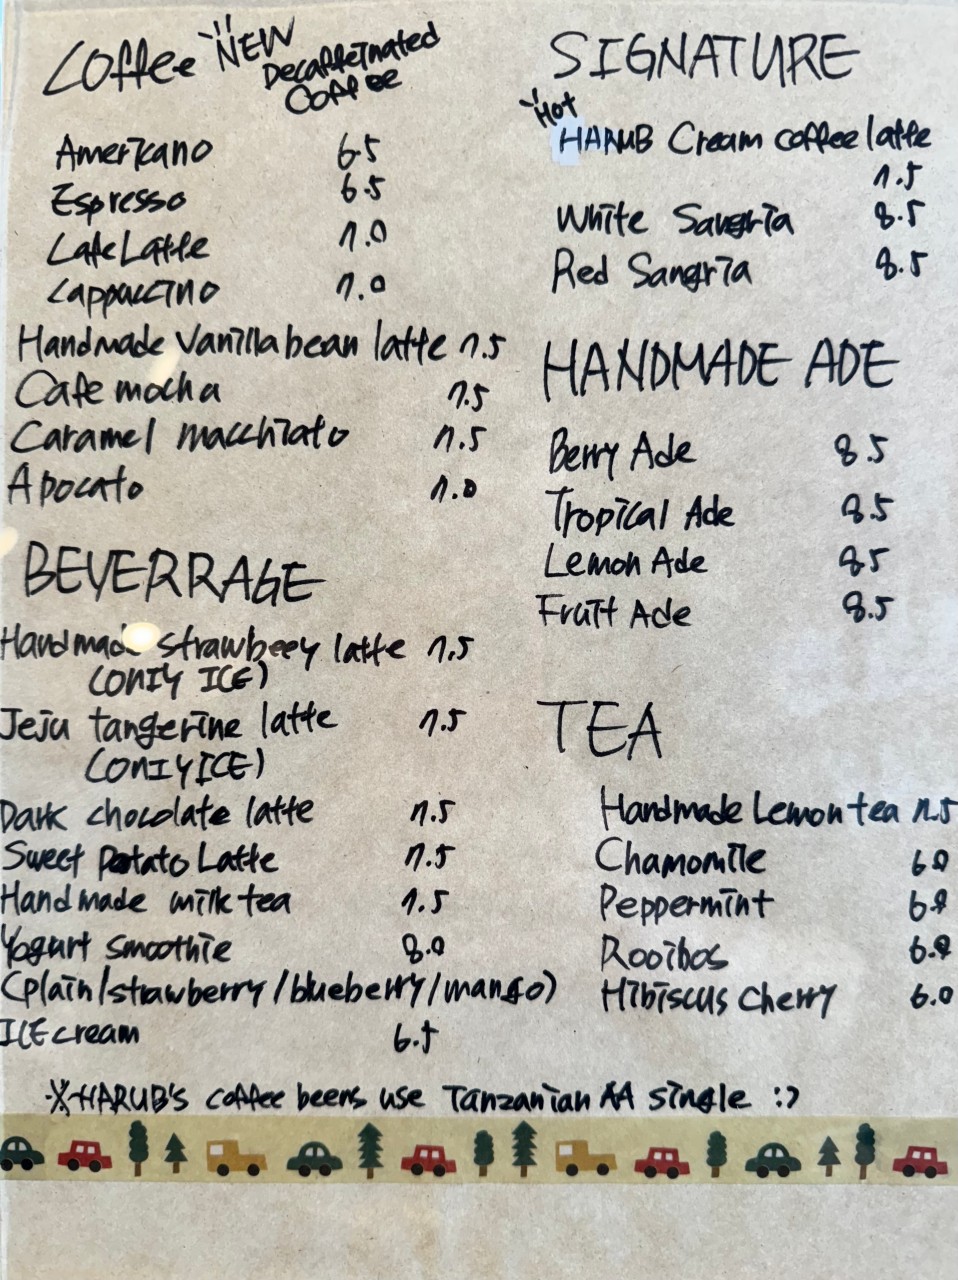 Coffee NEW
Decaffeinated
Coffee
Americano 6.5
Espresso 6.5
Cafe Latte 7.0
Cappuccino 7.0
Handmade Vanilla bean latte 7.5
Cafe mocha 7.5
Caramel macchiato 7.5
Apocato 7.0
BEVERRAGE
Handmade strawbeey latte 7.5
(ONlY ICE)
Jeju tangerine latte 7.5
(ONlY ICE)
Dark chocolate latte 7.5
Sweet Potato Latte 7.5
Handmade milk tea 7.5
Yogurt smoothie 8.0
(plain/strawberry/blueberry/mango)
ICE cream 6.5
SIGNATURE
Hot
HARUB Cream coffee latte
7.5
White Sangria 8.5
Red Sangria 8.5
HANDMADE ADE
Berry Ade 8.5
Tropical Ade 8.5
Lemon Ade 8.5
Fruit Ade 8.5
TEA
Handmade Lemon tea 7.5
Chamomile 6.0
Peppermint 6.0
Rooibos 6.0
Hibiscus Cherry 6.0
※HARUB's coffee beens use Tanzanian AA single :)